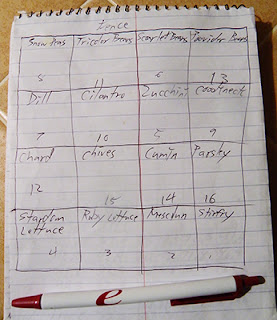 fence
Snow Peas Tricolor Beans Scarlet Beans Provider Beans
8 11 6 13
Dill Cilantro Zucchini Crookneck
7 10 5 9
Chard Chives Cumin Parsley
12 15 14 16
Lettuce Ruby Lettuce Mesclun Stirfry
4 3 2 1
e